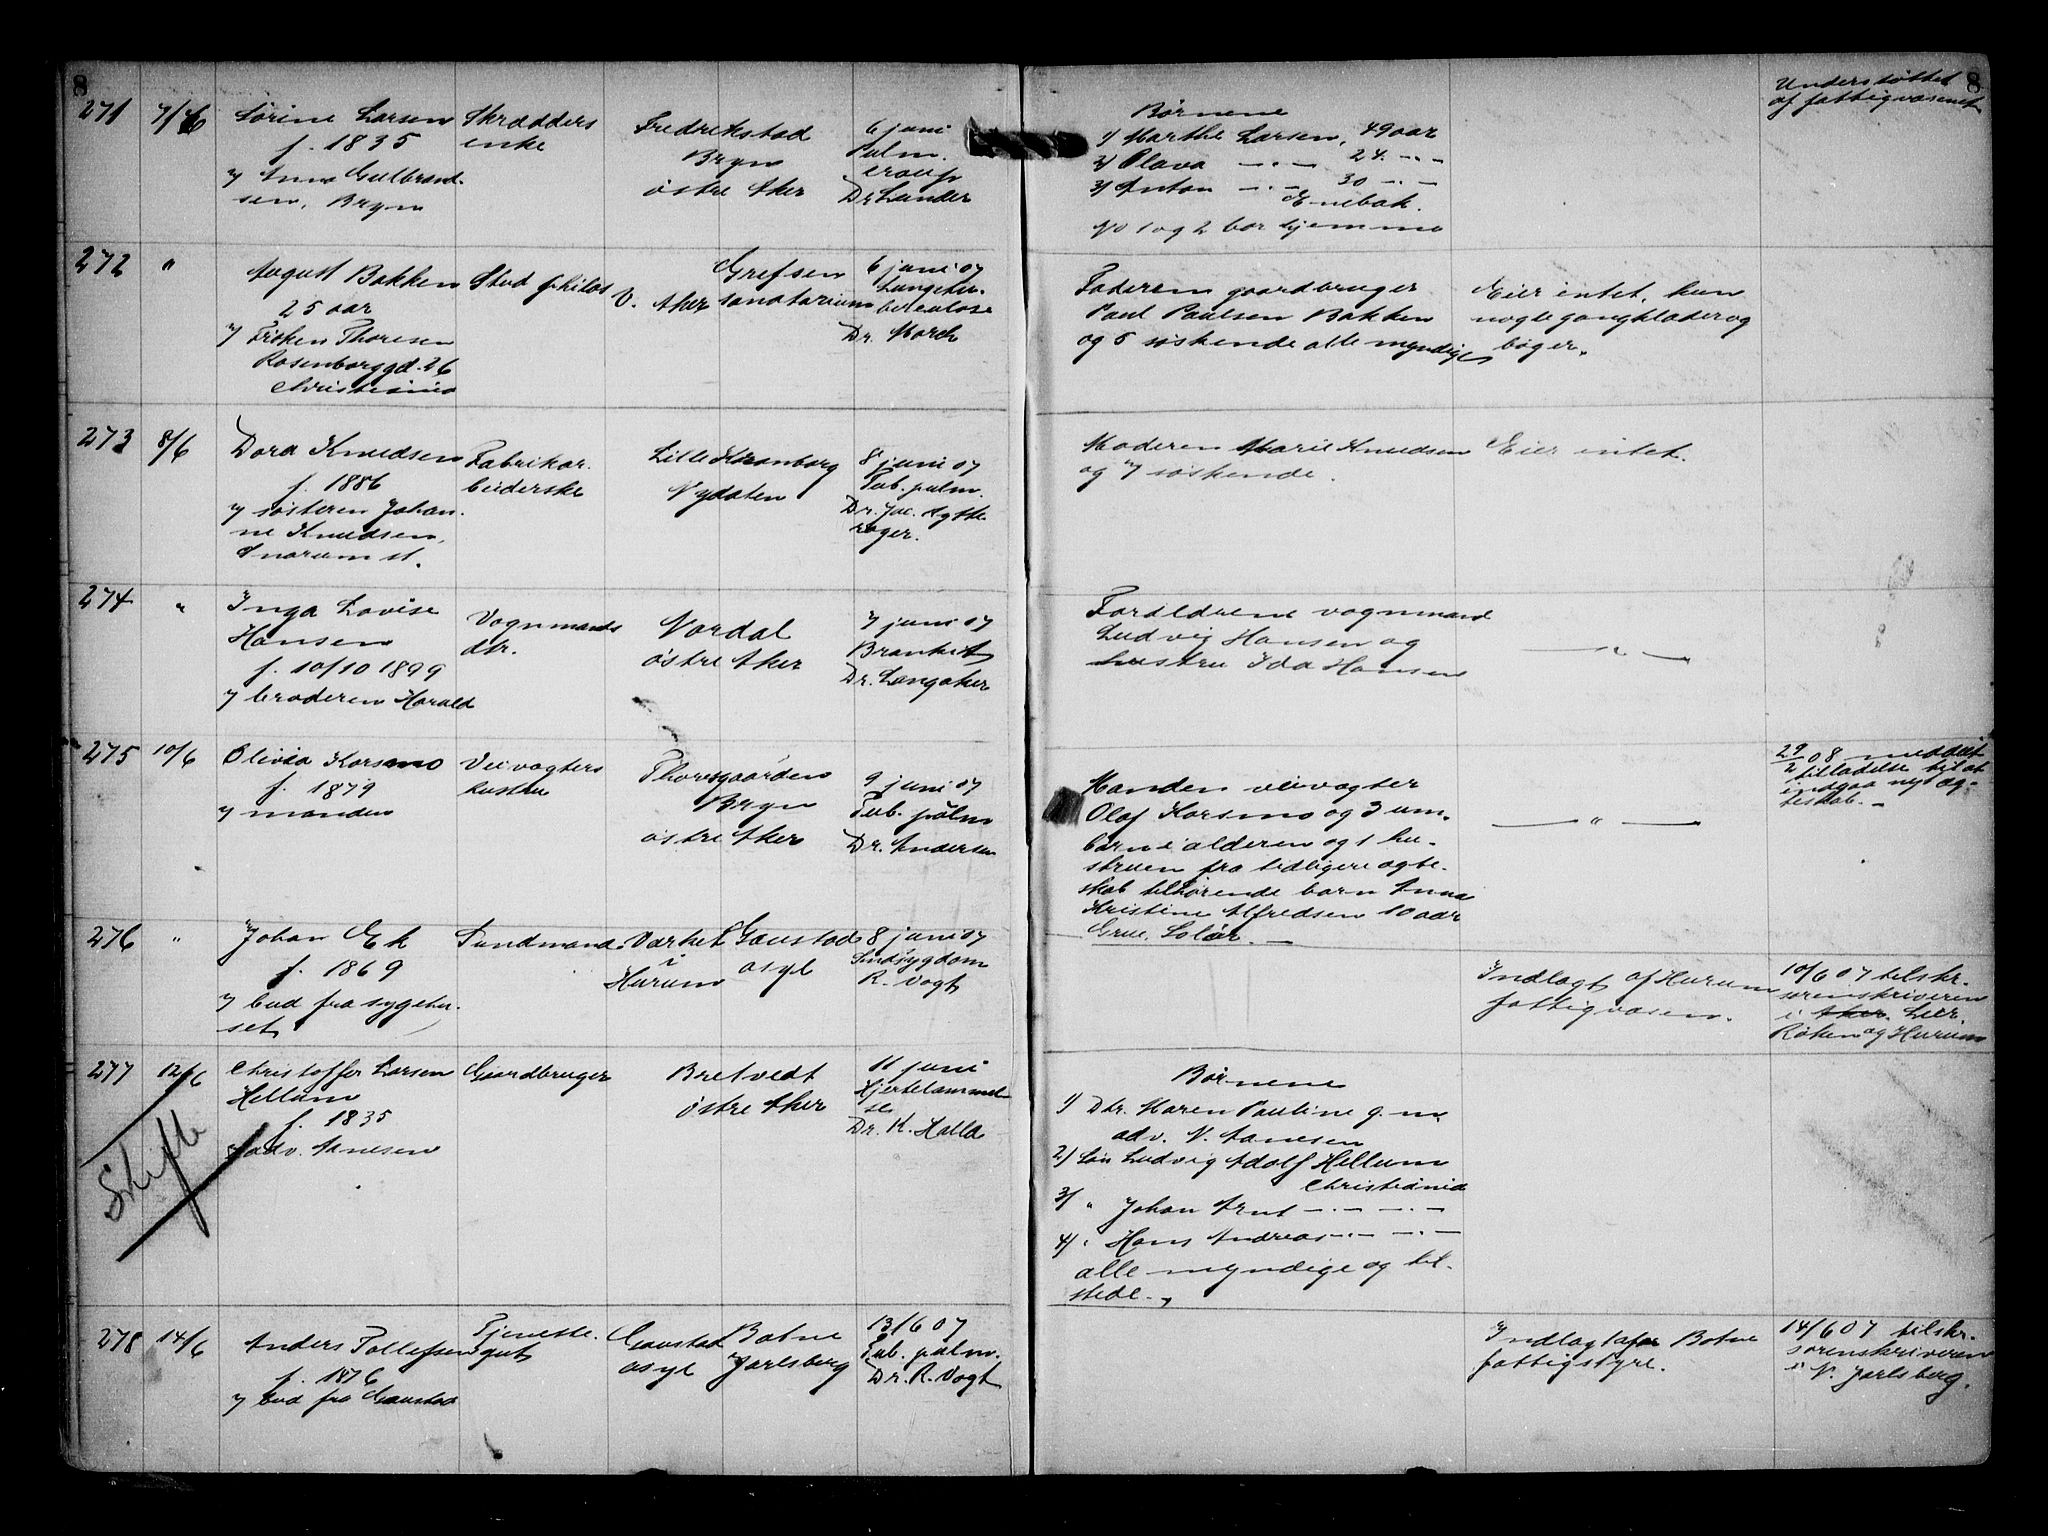 8
8
271
7/6
Sørine Larsen
f. 1835
v/ Anna Gulbrand-
sen, Bryn
Skrædders
enke
Fredrikstad
Bryn
østre Aker
6 juni
Pulm.
croup
Dr Lunder
Børnene
1) Marthe Larsen, 49 aar
2) Olava —"— 24 —"—
3) Anton —"— 30 —"—
Enebak.
No 1 og 2 bor hjemme
Understøttet
af fattigvæsenet
272
"
August Bakken
25 aar
v/ Frøken Thoresen
Rosenborggd. 26
Christiania
Stud philos
V. Aker
Grefsen
sanatorium
6 juni 07
Lungetu-
berculose
Dr. Morch
Faderen gaardbruger
Paul Paulsen Bakken
og 5 søskende alle myndige
Eier intet, kun
nogle gangklæder og
bøger.
273
8/6
Dora Knudsen
f. 1886
v/ søsteren Johan-
ne Knudsen,
Snarum st.
Fabrikar-
beiderske
Lille Kronborg
Nydalen
8 juni 07
Tub. pulm.
Dr. Jac. Lytke
rager.
Moderen Marie Knudsen
og 7 søskende.
Eier intet.
274
"
Inga Lovise
Hansen
f. 10/10 1899
v/ broderen Harald
Vognmands
dtr.
Nordal
østre Aker
7 juni 07
Bronkit
Dr. Langaker
Forældrene vognmand
Ludvig Hansen og
hustru Ida Hansen
—"—
275
10/6
Olivia Korsmo
f. 1879
v/ manden
Veivogters
hustru
Thorsgaarden
Bryn
østre Aker
9 juni 07
Tub. pulm
Dr. Andersen
Manden veivogter
Olaf Korsmo og 3 um.
barn i alderen og 1 hu-
struen fra tidligere ægte-
skab tilhørende barn Anna
Kristine Alfredsen 10 aar
Grue, Solør. —
—"—
29/2 08 meddelt
tilladelse til at
indgaa nyt æg-
teskab. —
276
"
Johan Ek
f. 1869
v/ bud fra sygehu-
set
Sundmand
Værket
i
Hurum
Gaustad
asyl
8 juni 07
Sindsygdom
R. Vogt
Indlagt af Hurum
fattigvæsen.
10/6 07 tilskr.
sorenskriveren
i Aker. Lier,
Røken og Hurum
277
12/6
Skifte
Christoffer Larsen
Hellum
f. 1835
v/ adv. Aanesen
Gaardbruger
Bretvedt
østre Aker
11 juni
Hjertelammel-
se
Dr. K. Hald
Børnene
1) Dtr. Maren Pauline g. m.
adv. N. Aanesen
2) Søn Ludvig Adolf Hellum
Christiania
3) " Johan Arnt —"— —"—
4) " Hans Andreas —"— —"—
alle myndige og til-
stede. —
278
14/6
Anders Tollefsen
f. 1876
v/ bud fra Gaustad
Tjeneste-
gut
Gaustad
asyl
Botne
Jarlsberg
13/6 07
Tub. pulm.
Dr. R. Vogt
Indlagt af Botne
fattigstyre.
14/6 07 tilskr.
sorenskriveren
i N. Jarlsberg.